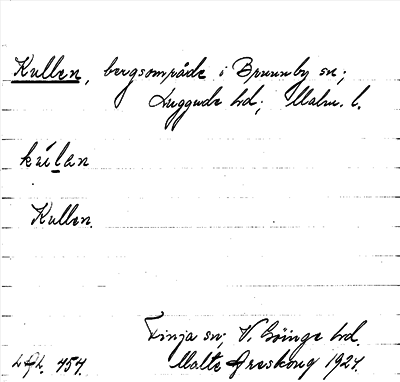 Kullen, bergsområde i Brunnby sn;
Luggude hd; Malm. l.
Kullen.
Finja sn; V. Göinge hd.
Malte Areskoug 1924.